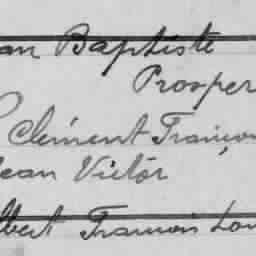 an Baptiste
Prosper
Clément Françoi
Jean Victor
lbert François Lou